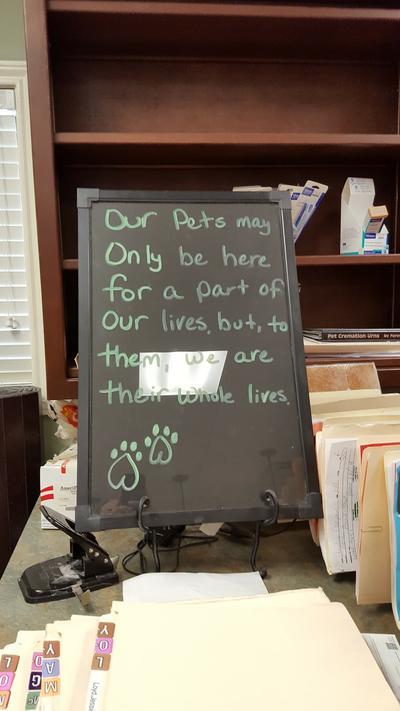 Our Pets may
Only be here
for a part of
Our lives, but, to
them, we are
their whole lives.
Pet Cremation Urns